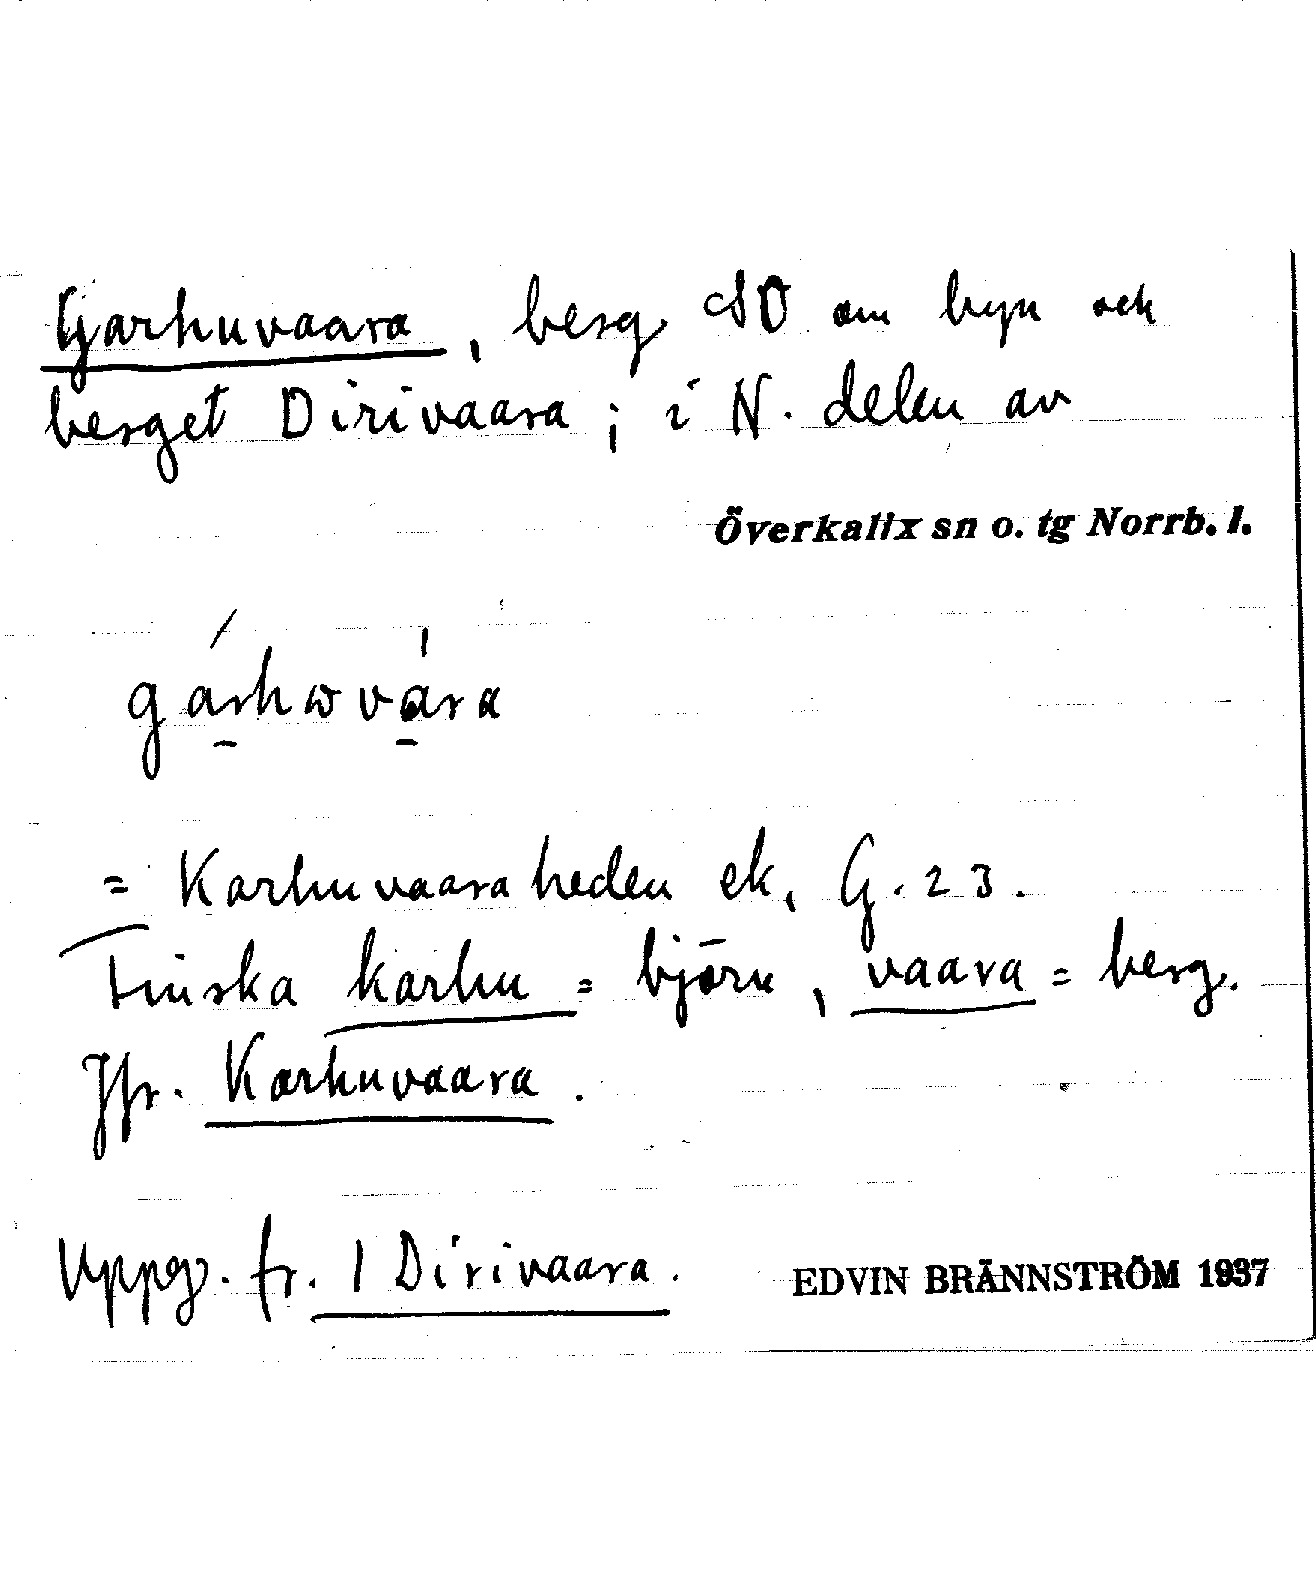 Garhuvaara, berg SO om byn och
berget Dirivaara; i N. delen av
Överkalix sn o. tg Norrb. l.
gárhωvára
= Karhuvaaraheden ek. G. 23.
Finska karhu = björn, vaara = berg.
Jfr. Karhuvaara.
Uppg. fr. 1 Dirivaara.
EDVIN BRÄNNSTRÖM 1937